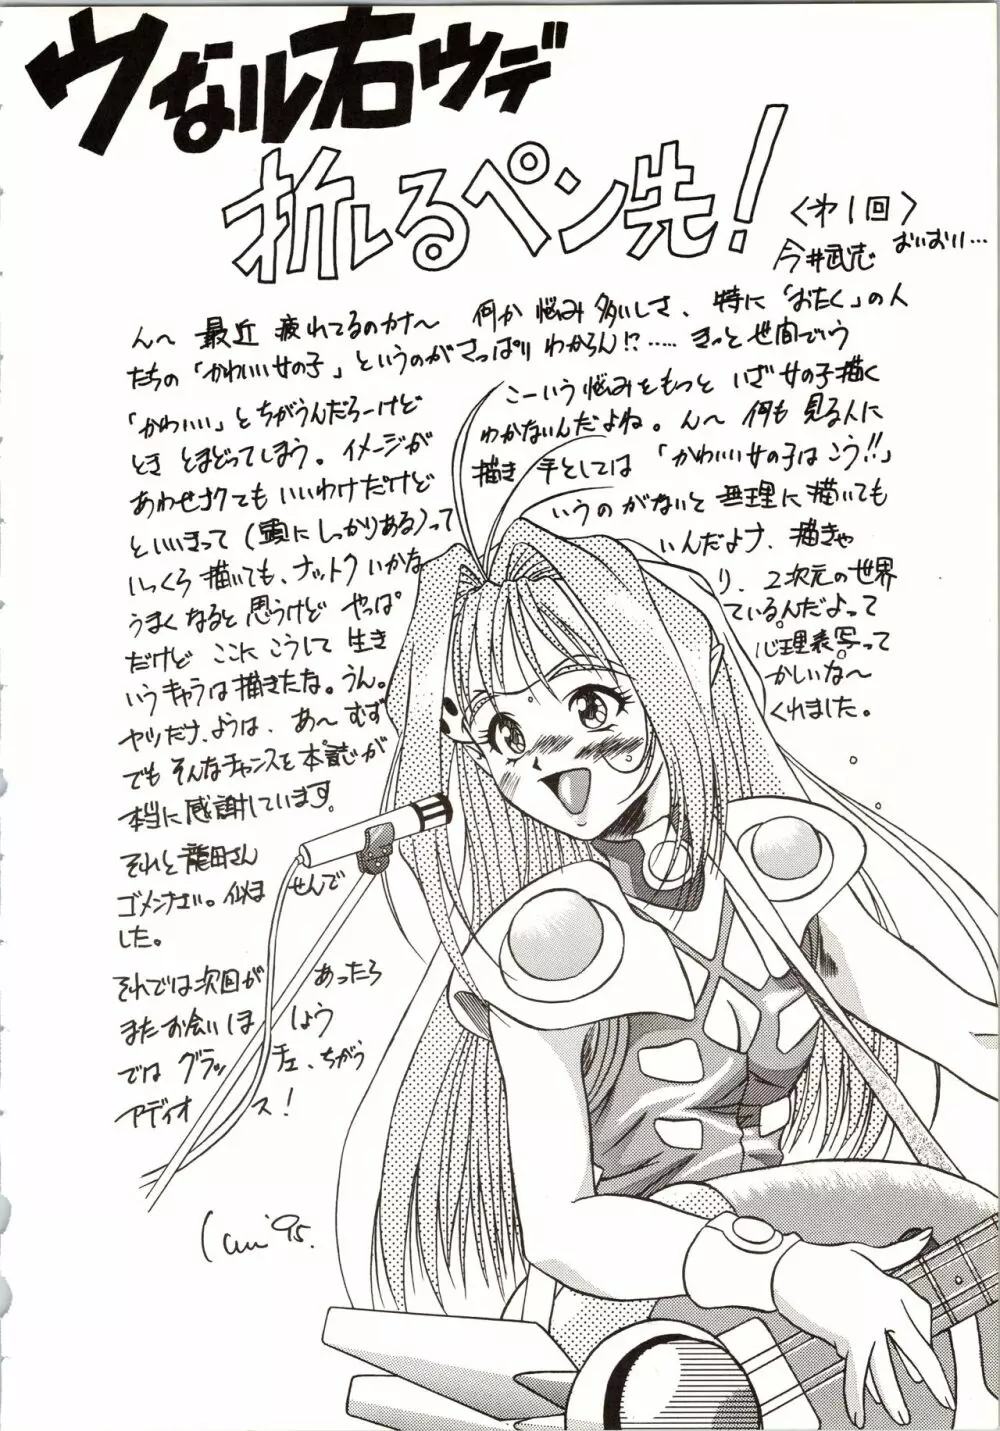 ウなル右ウデ
折れるペン先!
〈才1回〉
今井武志 おいおい…
ん〜 最近 疲れてるのカナ〜 何か 悩み 多いしさ、特に「おたく」の人
たちの「かわいい女の子」というのがさっぱり わからん!?…… きっと 世間でいう
「かわいい」とちがうんだろーけど こーいう悩みをもっと いざ 女の子描く
とき とまどってしまう。イメージが わかないんだよね。ん〜 何も 見る人に
あわせナクても いいわけだけど 描き 手としては 「かわいい女の子は こう!!」
といいきって(頭にしっかりある)って いうのがないと 無理に描いても
しっくら 描いても、ナットク いかな いんだよナ、描きゃ
うまく なると 思うけど やっぱ り、2次元の世界
だけど ここに こうして 生き ているんだよって
いうキャラは描きたな。うん。 心理表写って
ヤツだナ、ようは、あ〜 むず かしいな〜
でも そんなチャンスを 本誌が くれました。
本当に 感謝しています。
それと 龍田さん
ゴメンナさい。似ま せんで
した。
それでは次回が あったら
また お会いしま しょう
では グラッ チェ、ちがう
アディオ ス!
Imai '95.